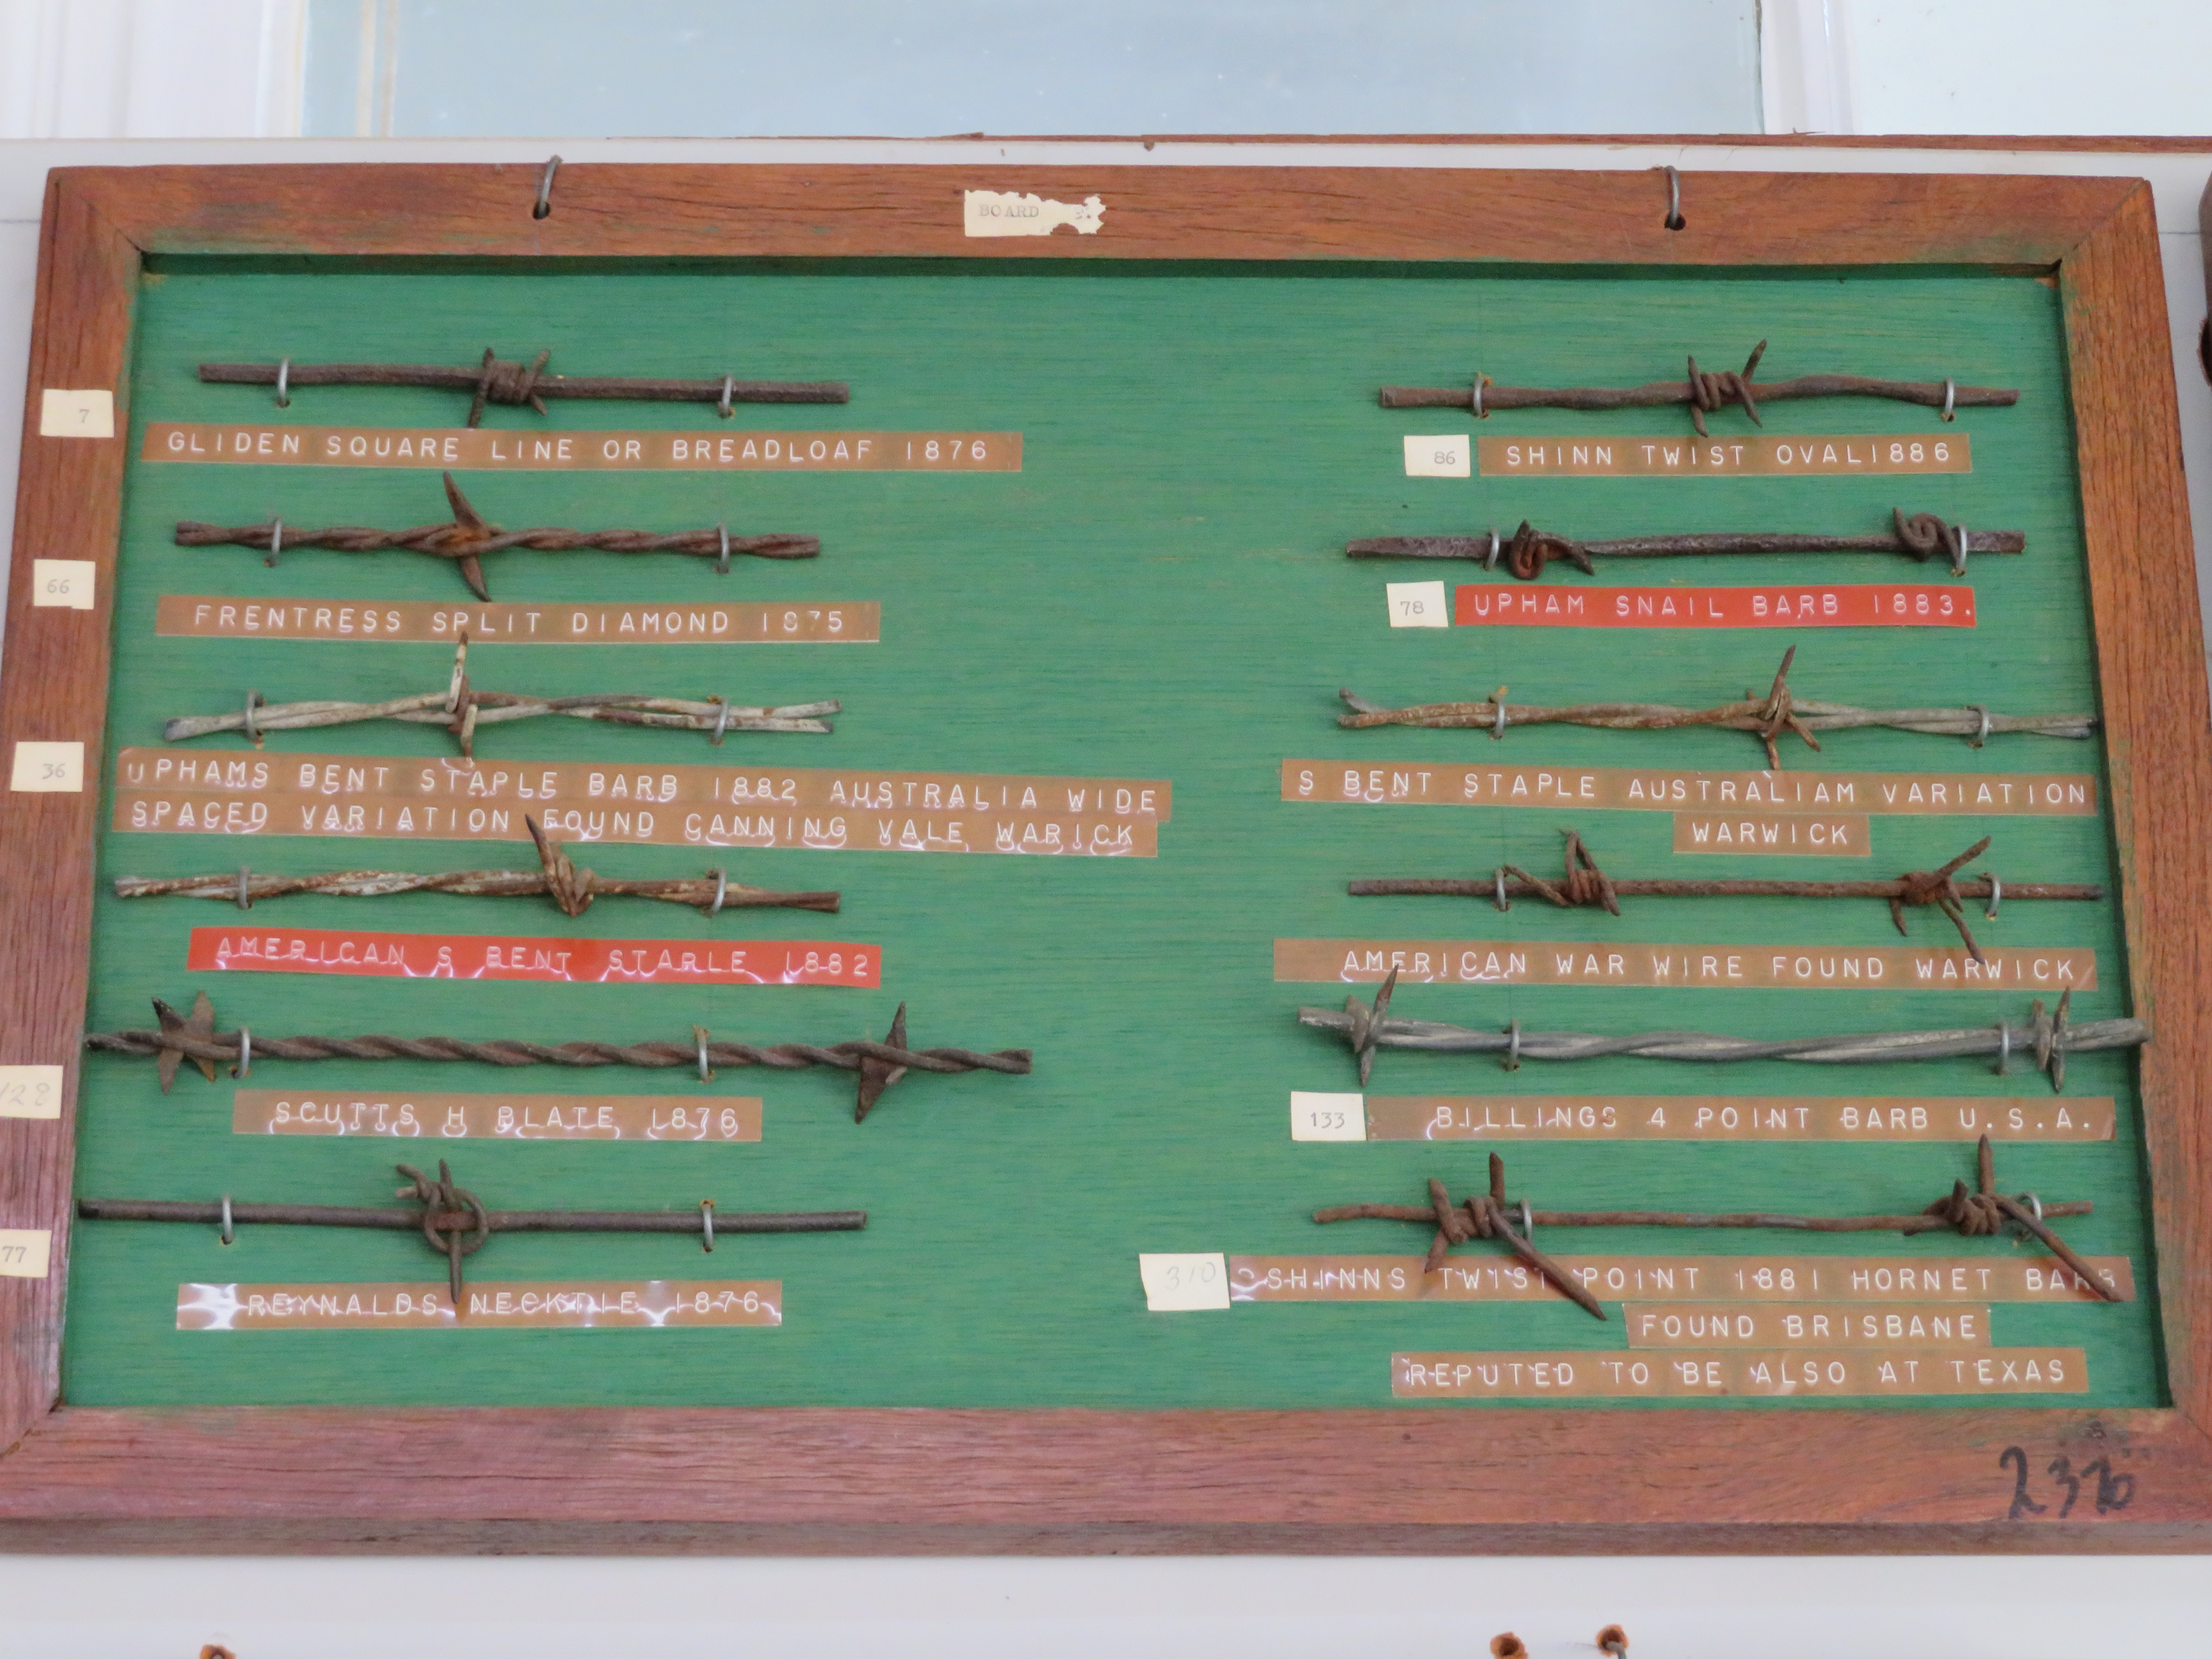 BOARD 3.
7
GLIDEN SQUARE LINE OR BREADLOAF 1876
66
FRENTRESS SPLIT DIAMOND 1875
36
UPHAMS BENT STAPLE BARB 1882 AUSTRALIA WIDE
SPACED VARIATION FOUND CANNING VALE WARICK
AMERICAN S BENT STAPLE 1882
128
SCUTTS H BLATE 1876
77
REYNALDS NECKTIE 1876
86 SHINN TWIST OVAL1886
78 UPHAM SNAIL BARB 1883.
S BENT STAPLE AUSTRALIAM VARIATION
WARWICK
AMERICAN WAR WIRE FOUND WARWICK
133 BILLINGS 4 POINT BARB U.S.A.
310 SHINNS TWIST POINT 1881 HORNET BARB
FOUND BRISBANE
REPUTED TO BE ALSO AT TEXAS